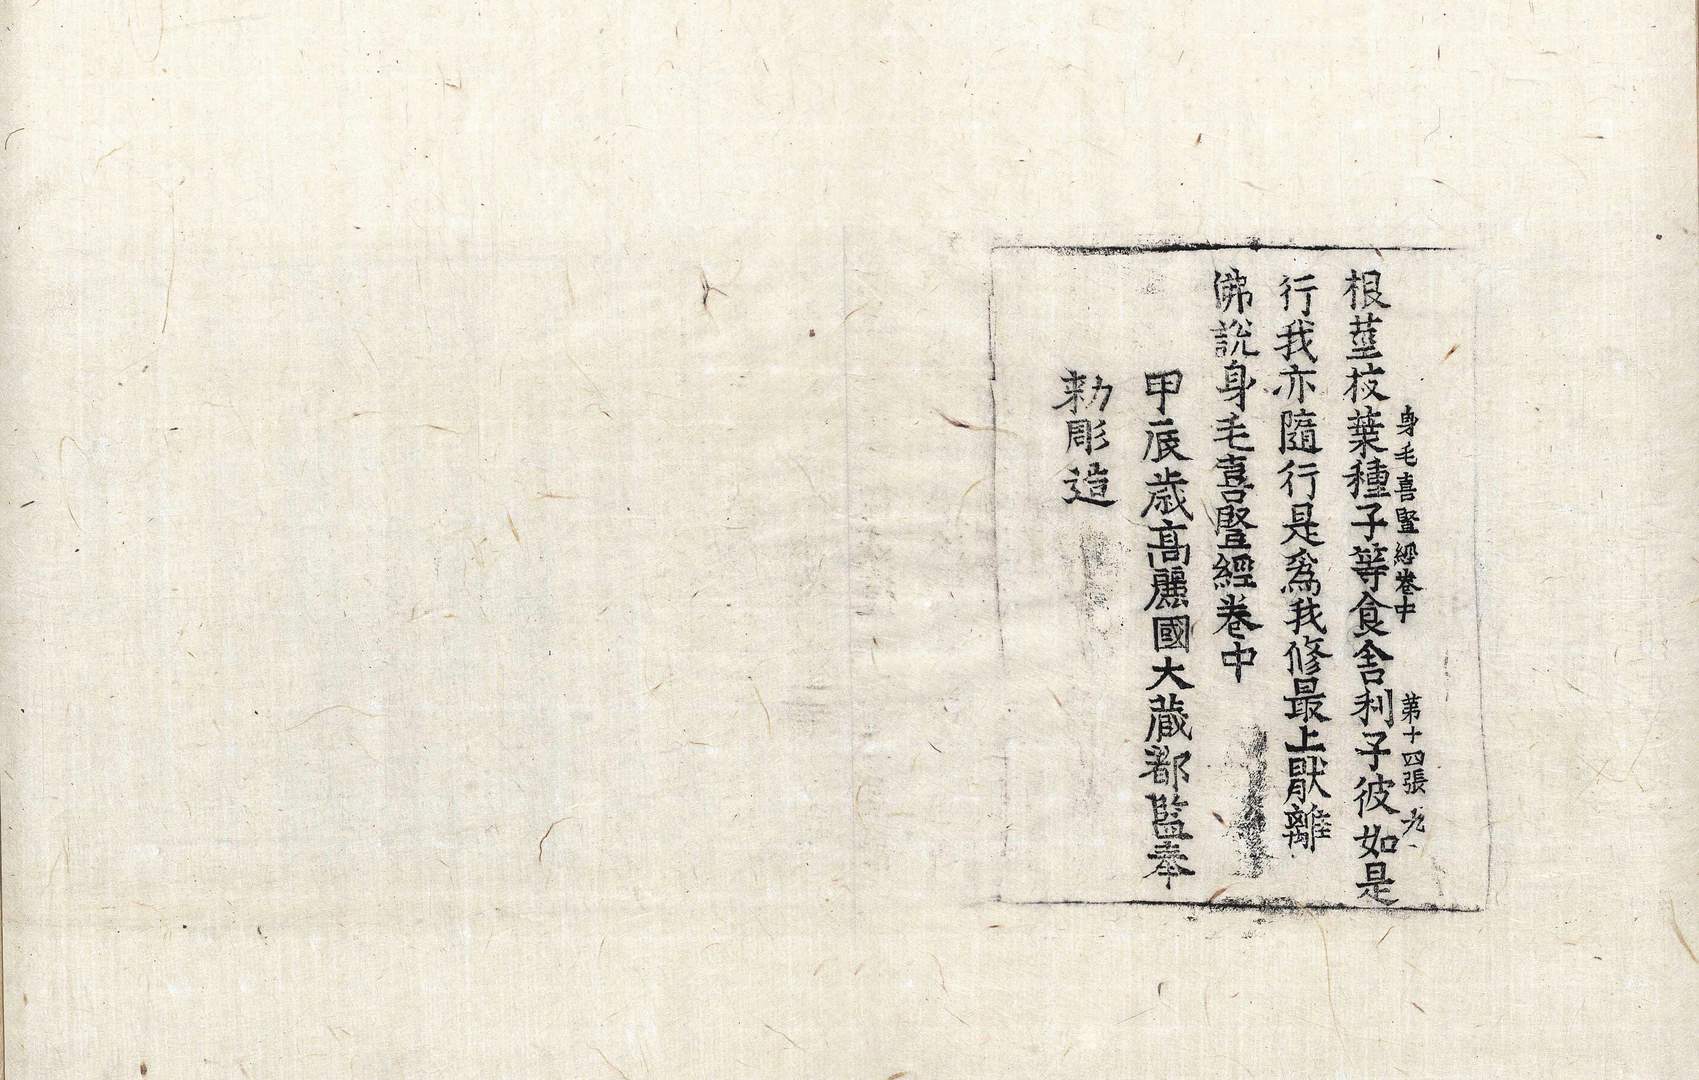 身毛喜竪經卷中 第十四張 光
根莖枝葉種子等食舍利子彼如是
行我亦隨行是爲我修最上猒離
佛說身毛喜竪經卷中
甲辰歲高麗國大藏都監奉
勅彫造